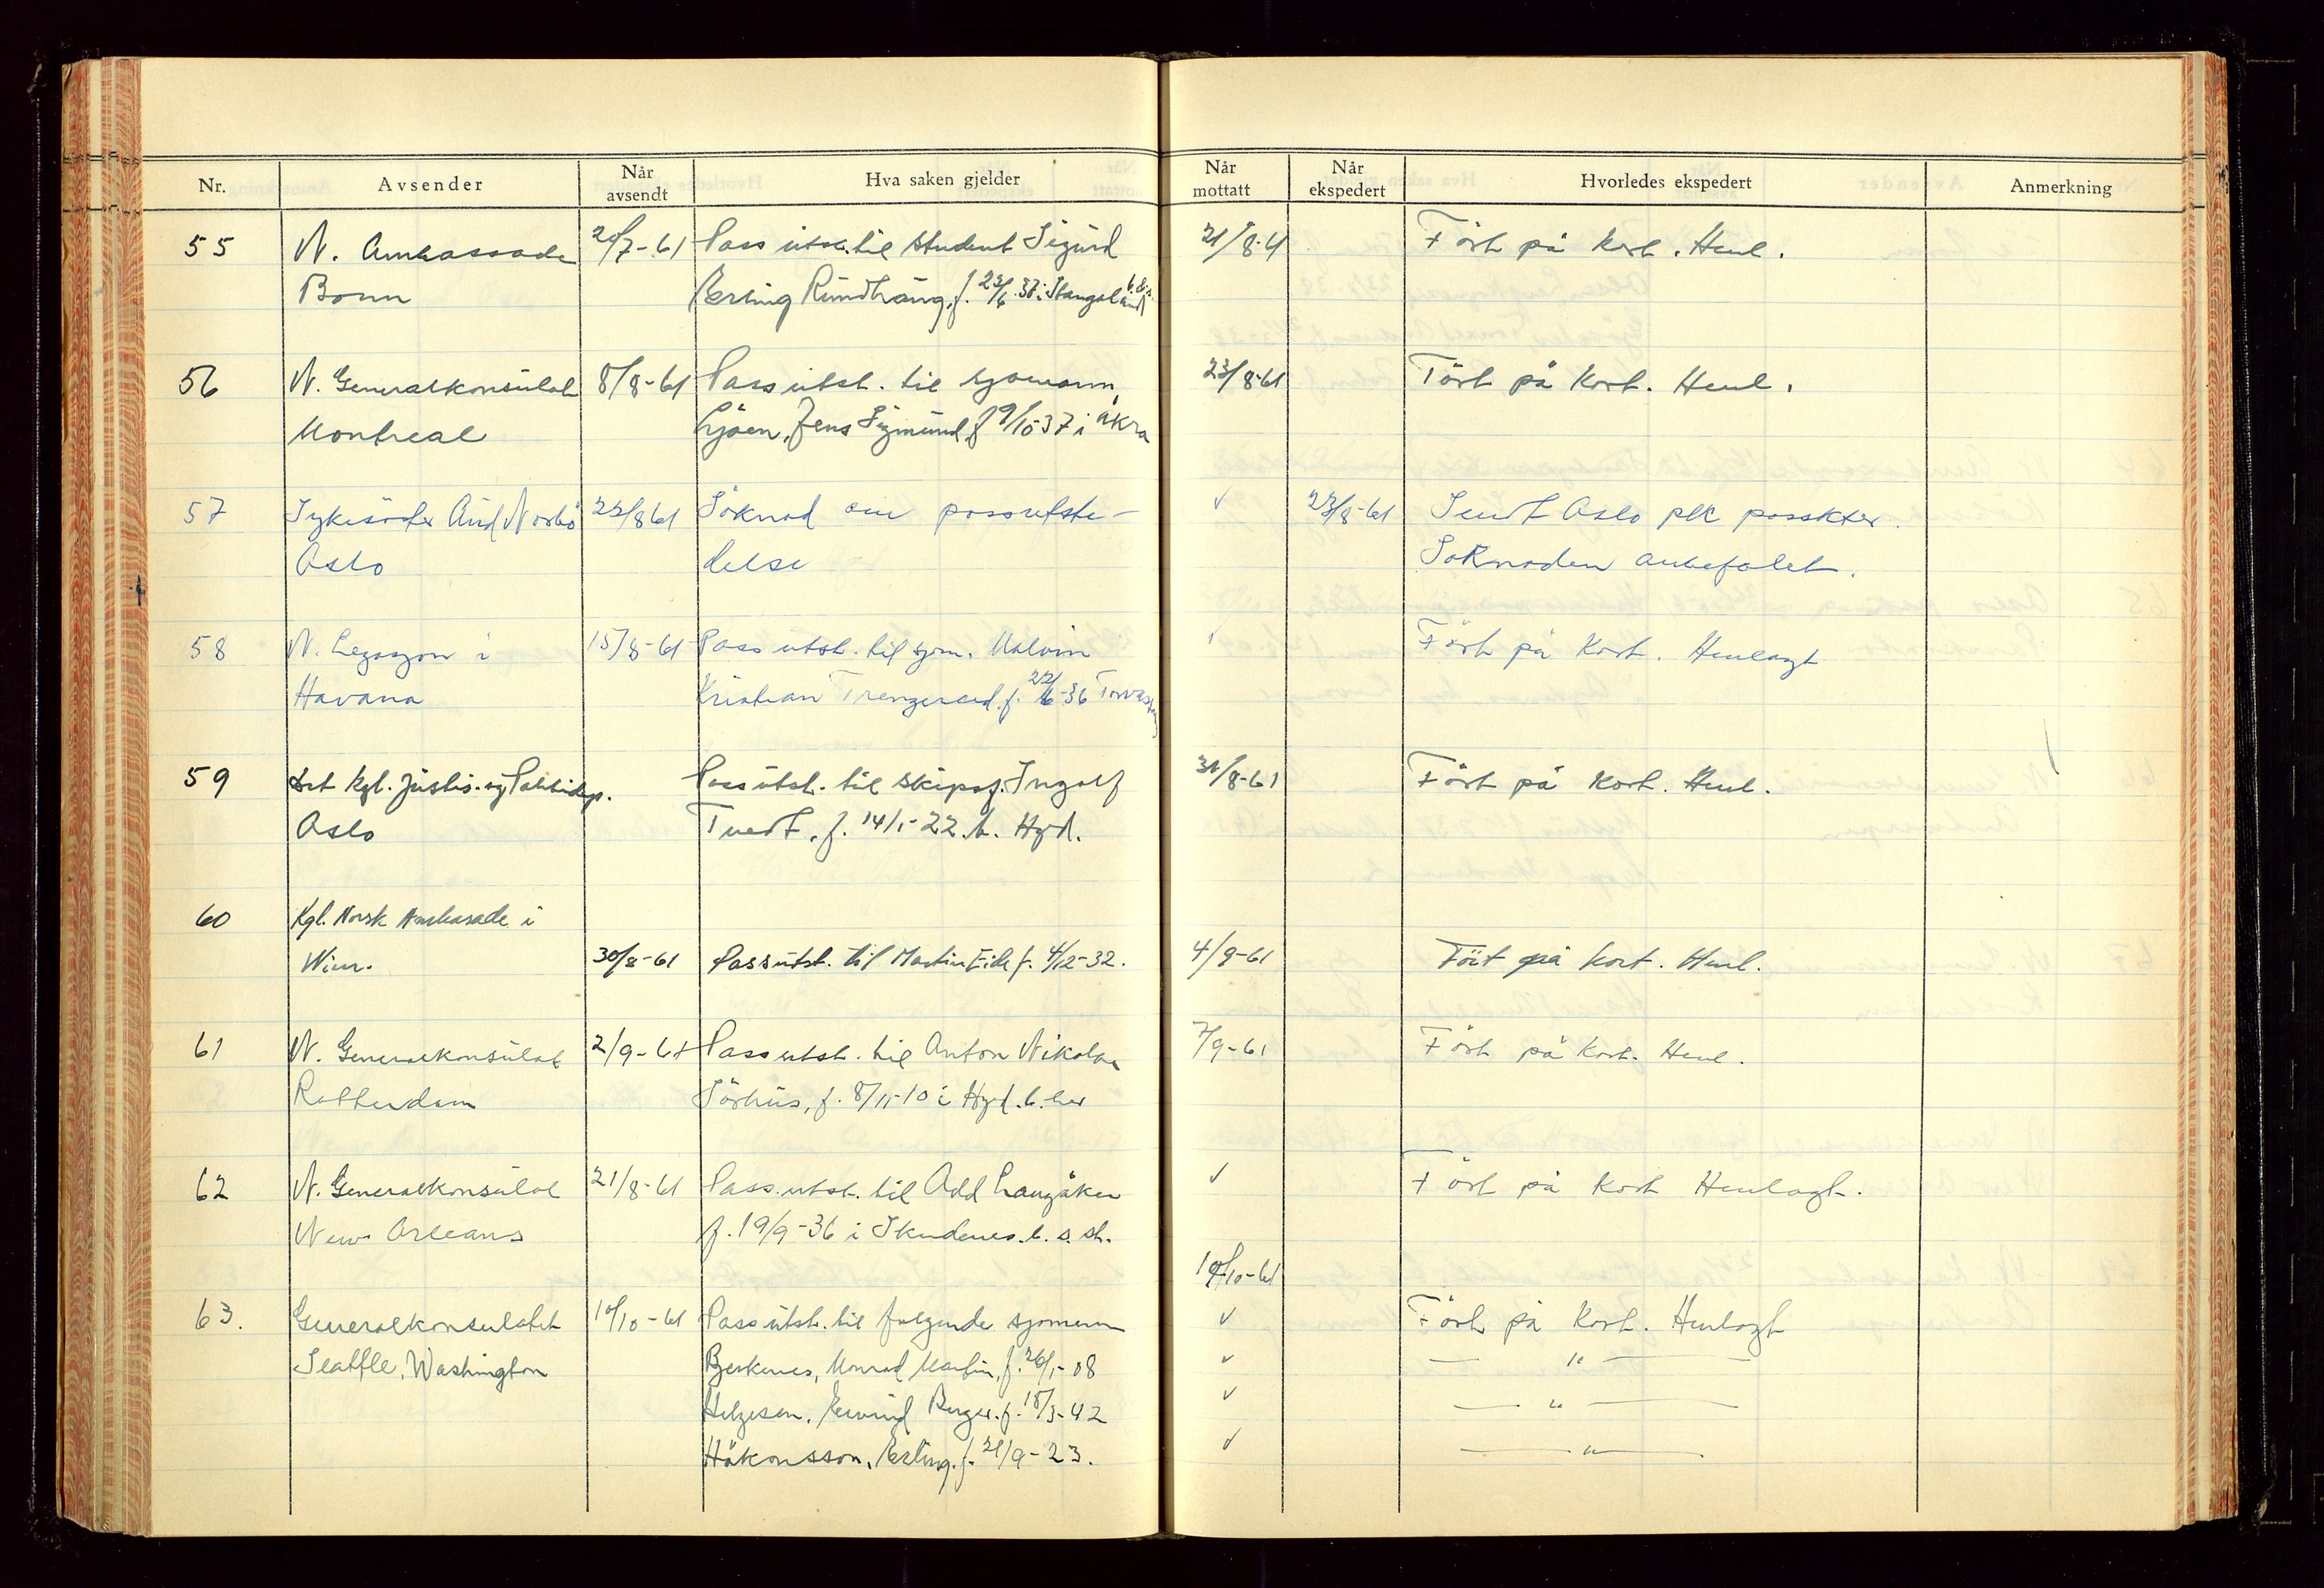 Nr. Avsender Når avsendt Hva saken gjelder Når mottatt Når ekspedert Hvorledes ekspedert Anmerkning
55 N. Ambassade 20/7-61 Pass utst. til student Sigurd 21/8-61 Ført på kort. Henl.
Bonn Erling f. 37 i
56 N. Generalkonsulat 8/8-61 Pass utst. til sjømann 23/8-61 Ført på kort. Henl.
Montreal Jens Sigmund f 9/10-37 i Åkra
57 Aud Norbø 22/8 61 Søknad om passutste- ✓ 23/8-61 Sendt Oslo plk passktr.
Oslo delse Søknaden anbefalet.
58 N. Legasjon i 15/8-61 Pass utst. til sjøm. Malvin ✓ Ført på kort. Henlagt
Havana Kristian f. 22/6-36 Torvastad
59 Det Kgl. Justis- og Politidep. Pass utst. til skipsf. Ingolf 31/8-61 Ført på kort. Henl.
Oslo Tvedt, f. 14/1-22. b. Hgsd.
60 Kgl. Norsk Ambasade i
Wien. 30/8-61 Pass utst. til Martin Eide f. 4/12-32. 4/9-61 Ført på kort. Henl.
61 N. Generalkonsulat 2/9-61 Pass utst. til Anton Nikolai 7/9-61 Ført på kort. Henl.
Rotterdam Sørhus, f. 8/11-10 i Hgsd. b. her
62 N. Generalkonsulat 21/8-61 Pass utst. til Odd Langåker ✓ Ført på kort Henlagt.
New Orleans f. 19/9-36 i Skudenes. b. s. st.
10/10-61
63. Generalkonsulatet 10/10-61 Pass utst. til følgende sjømenn ✓ Ført på kort. Henlagt
Seattle, Washington Bjerkenes, Monrad Martin, f. 26/1-08 ✓ — " —
Helgesen, Berger. f. 18/3-42 ✓ — " —
Håkonsson, Erling. f. 21/9-23. ✓ — " —